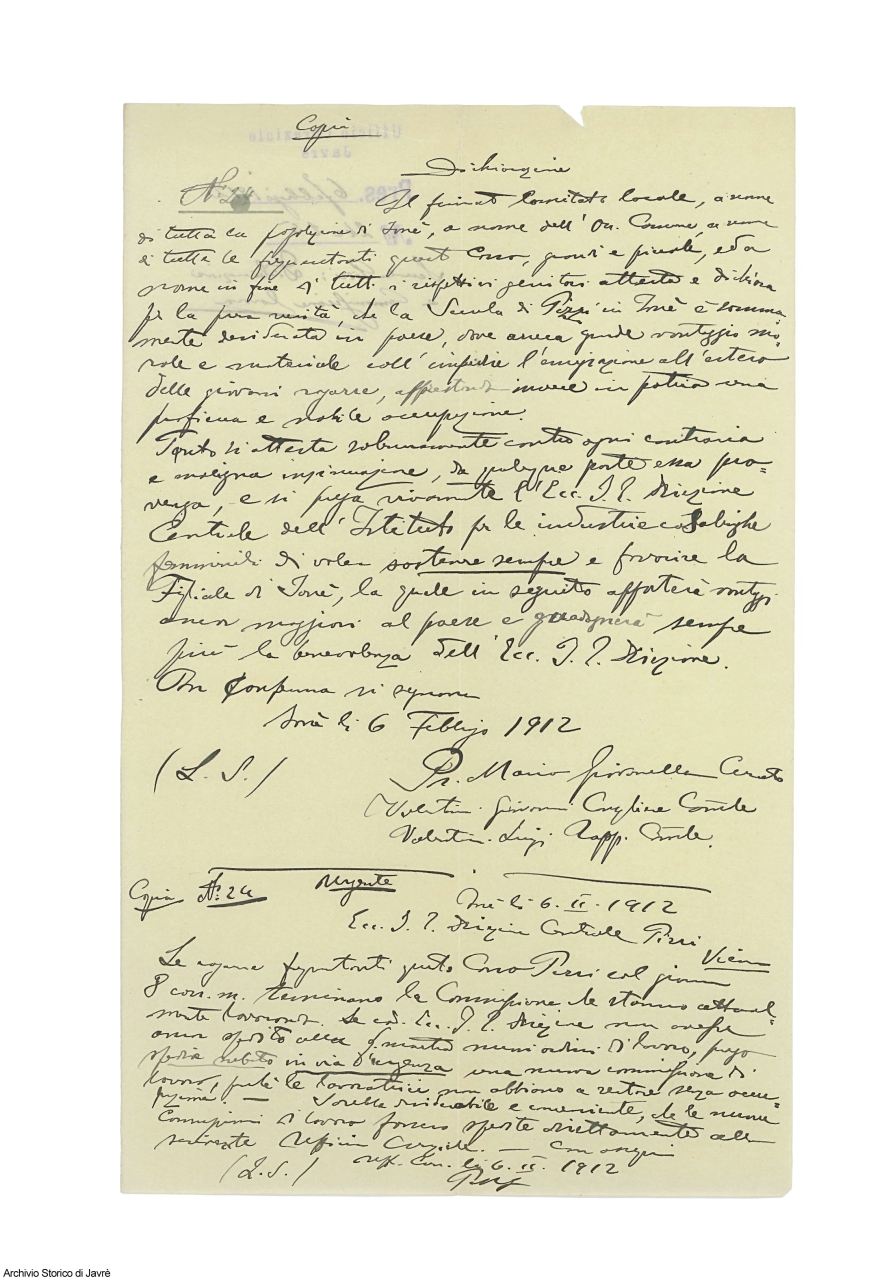 Copia
Dichiarazione
Il firmato Comitato locale, a nome
di tutta la popolazione di Javrè, a nome dell'On. Comune, a nome
di tutte le frequentanti questo Corso, grandi e piccole, ed a
nome in fine di tutti i rispettivi genitori attesta e dichiara
per la pura verità, che la Scuola di Pizzi in Javrè è somma-
mente desiderata in paese, dove arreca grande vantaggio mo-
rale e materiale coll'impedire l'emigrazione all'estero
delle giovani ragazze, apprestando invece in patria una
proficua e nobile occupazione.
Tanto si attesta solennemente contro ogni contraria
e maligna insinuazione, da qualunque parte essa pro-
venga, e si prega vivamente l'Ecc. I. R. Direzione
Centrale dell'Istituto per le industrie casalinghe
femminili di voler sostenere sempre e favorire la
Filiale di Javrè, la quale in seguito apporterà vantaggi
ancor maggiori al paese e guadagnerà sempre
più la benevolenza dell'Ecc. I. R. Direzione.
Per conferma si firmano
Javrè li 6 Febbrajo 1912
(L. S.)
Pr. Mario Curato
Valentini Giovanni Comle
Valentini Luigi Rapp. Comle.
Copia N.º 24 Urgente
Javrè li 6. II. 1912
Ecc. I. R. Direzione Centrale Pizzi
Vienna
Le ragazze frequentanti questo Corso Pizzi col giorno
8 corr. m. terminano la Commissione che stanno attual-
mente lavorando. Se cod. Ecc. I. R. Direzione non avesse
ancor spedito alla maestra nuovi ordini di lavoro, prego
spedir subito in via d'urgenza una nuova commissione di
lavoro, perchè le lavoratrici non abbiano a restare senza occu-
pazione. — Sarebbe desiderabile e conveniente, che le nuove
Commissioni di lavoro fossero spedite direttamente allo
scrivente Ufficio Curaziale. — Con ossequi
Uff. Cur. li 6. II. 1912
(L. S.)